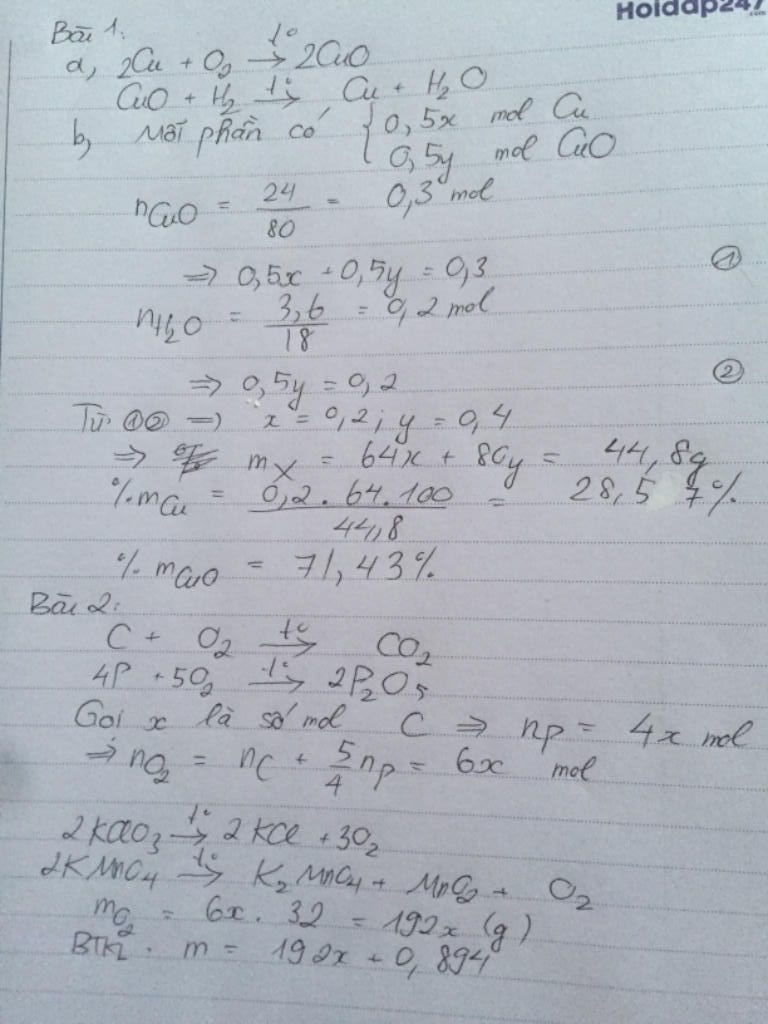 Hoidap247
.com
Bài 1:
a, 2Cu + O₂ t°→ 2CuO
CuO + H₂ t°→ Cu + H₂O
b, Mỗi phần có { 0,5x mol Cu
0,5y mol CuO
nCuO = 24/80 = 0,3 mol
=> 0,5x + 0,5y = 0,3 ①
nH₂O = 3,6/18 = 0,2 mol
=> 0,5y = 0,2 ②
Từ ①② => x = 0,2; y = 0,4
=> mX = 64x + 80y = 44,8g
%mCu = 0,2.64.100/44,8 = 28,57%
%mCuO = 71,43%
Bài 2:
C + O₂ t°→ CO₂
4P + 5O₂ t°→ 2P₂O₅
Gọi x là số mol C => nP = 4x mol
=> nO₂ = nC + 5/4 nP = 6x mol
2KClO₃ t°→ 2KCl + 3O₂
2KMnO₄ t°→ K₂MnO₄ + MnO₂ + O₂
mO₂ = 6x.32 = 192x (g)
BTKL. m = 192x + 0,894